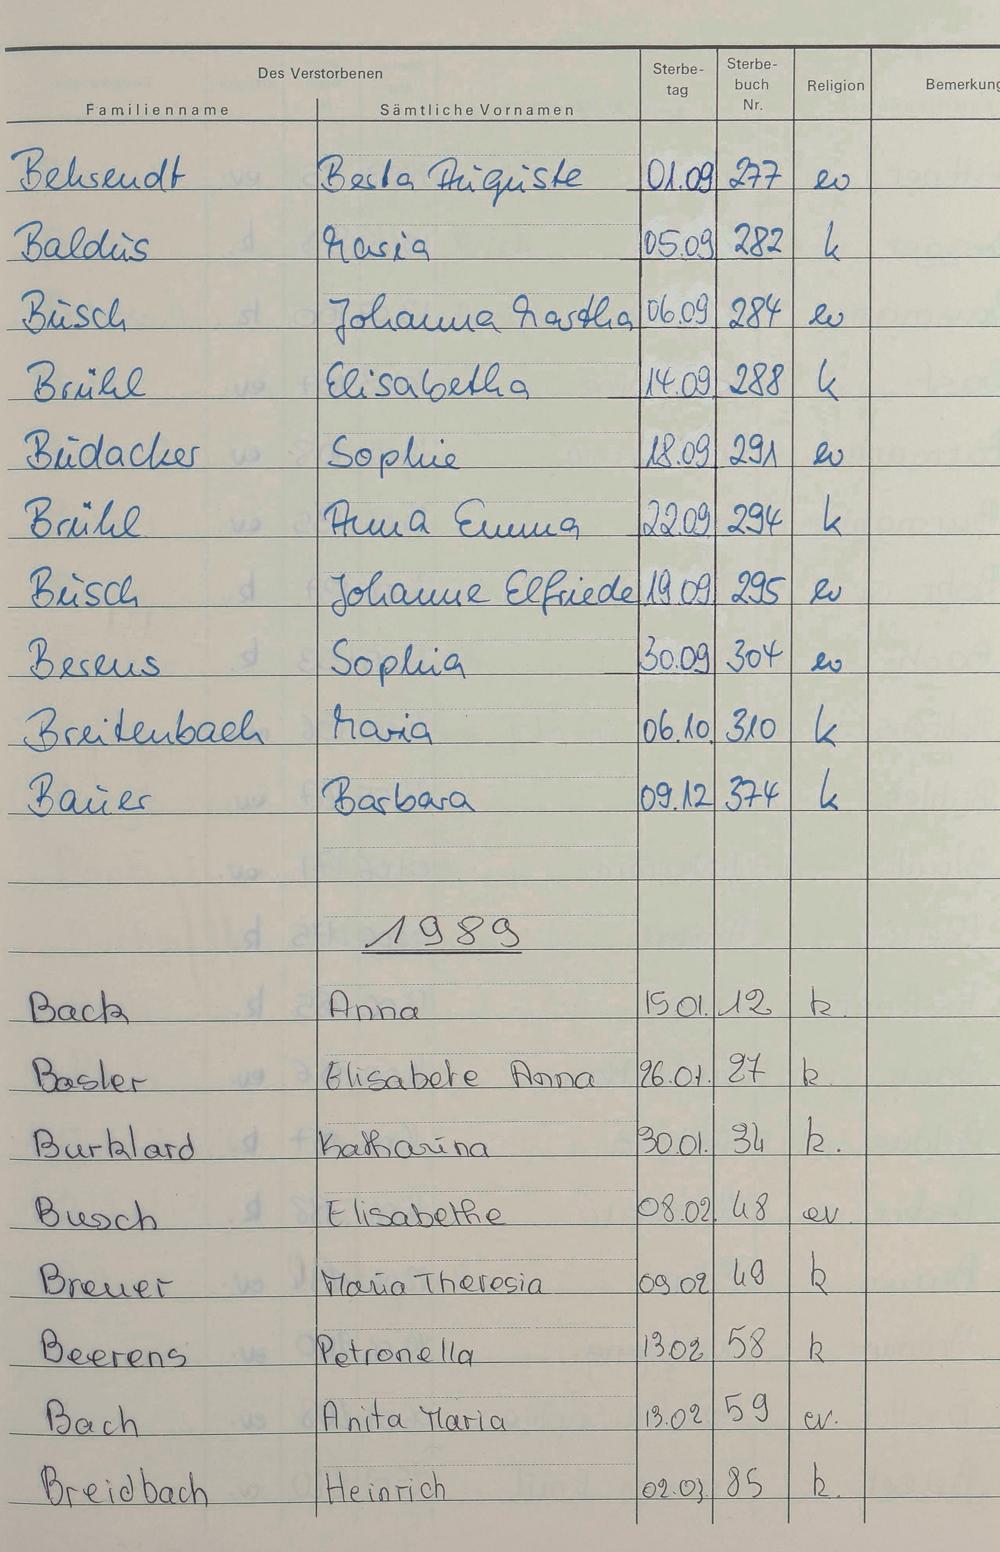 Des Verstorbenen Sterbe- Sterbe-
tag buch Religion Bemerkung
Familienname Sämtliche Vornamen Nr.
Behrendt Berta Auguste 01.09 277 ev
Baldus Maria 05.09 282 k
Busch Johanna Martha 06.09 284 ev
Brühl Elisabetha 14.09 288 k
Budacker Sophie 18.09 291 ev
Brühl Anna Emma 22.09 294 k
Busch Johanne Elfriede 19.09 295 ev
Berens Sophia 30.09 304 ev
Breitenbach Maria 06.10. 310 k
Bauer Barbara 09.12 374 k
1989
Back Anna 15.01. 12 k.
Basler Elisabete Anna 26.01. 27 k
Burklard Katharina 30.01. 34 k.
Busch Elisabethe 08.02. 48 ev.
Breuer Maria Theresia 09.02 49 k
Beerens Petronella 13.02 58 k
Bach Anita Maria 13.02 59 ev.
Breidbach Heinrich 02.03. 85 k.